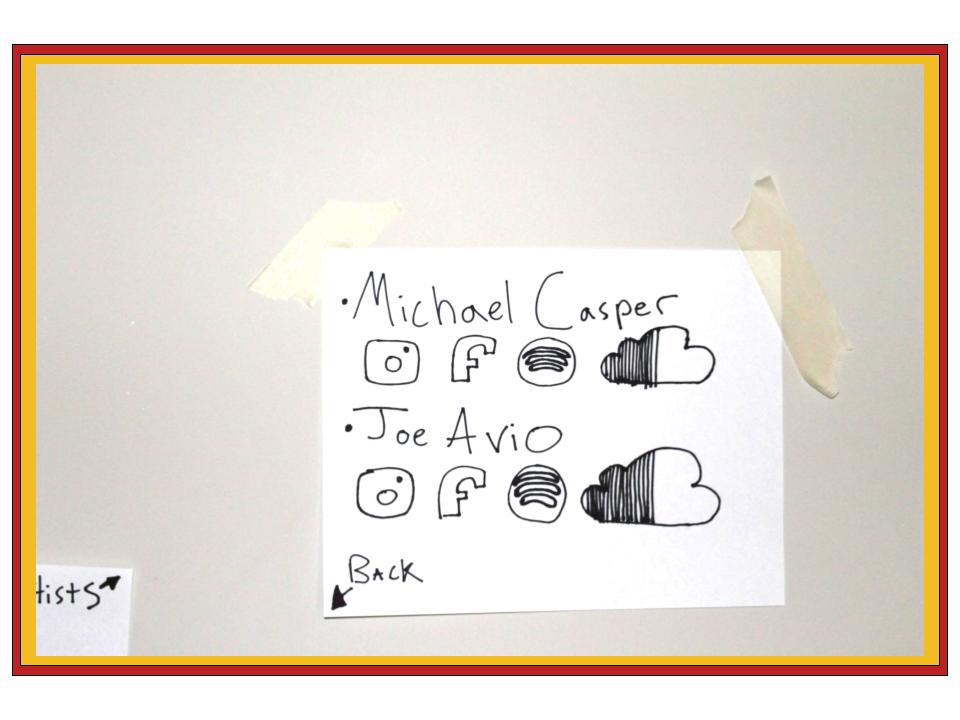 · Michael Casper
· Joe Avio
Back
tists